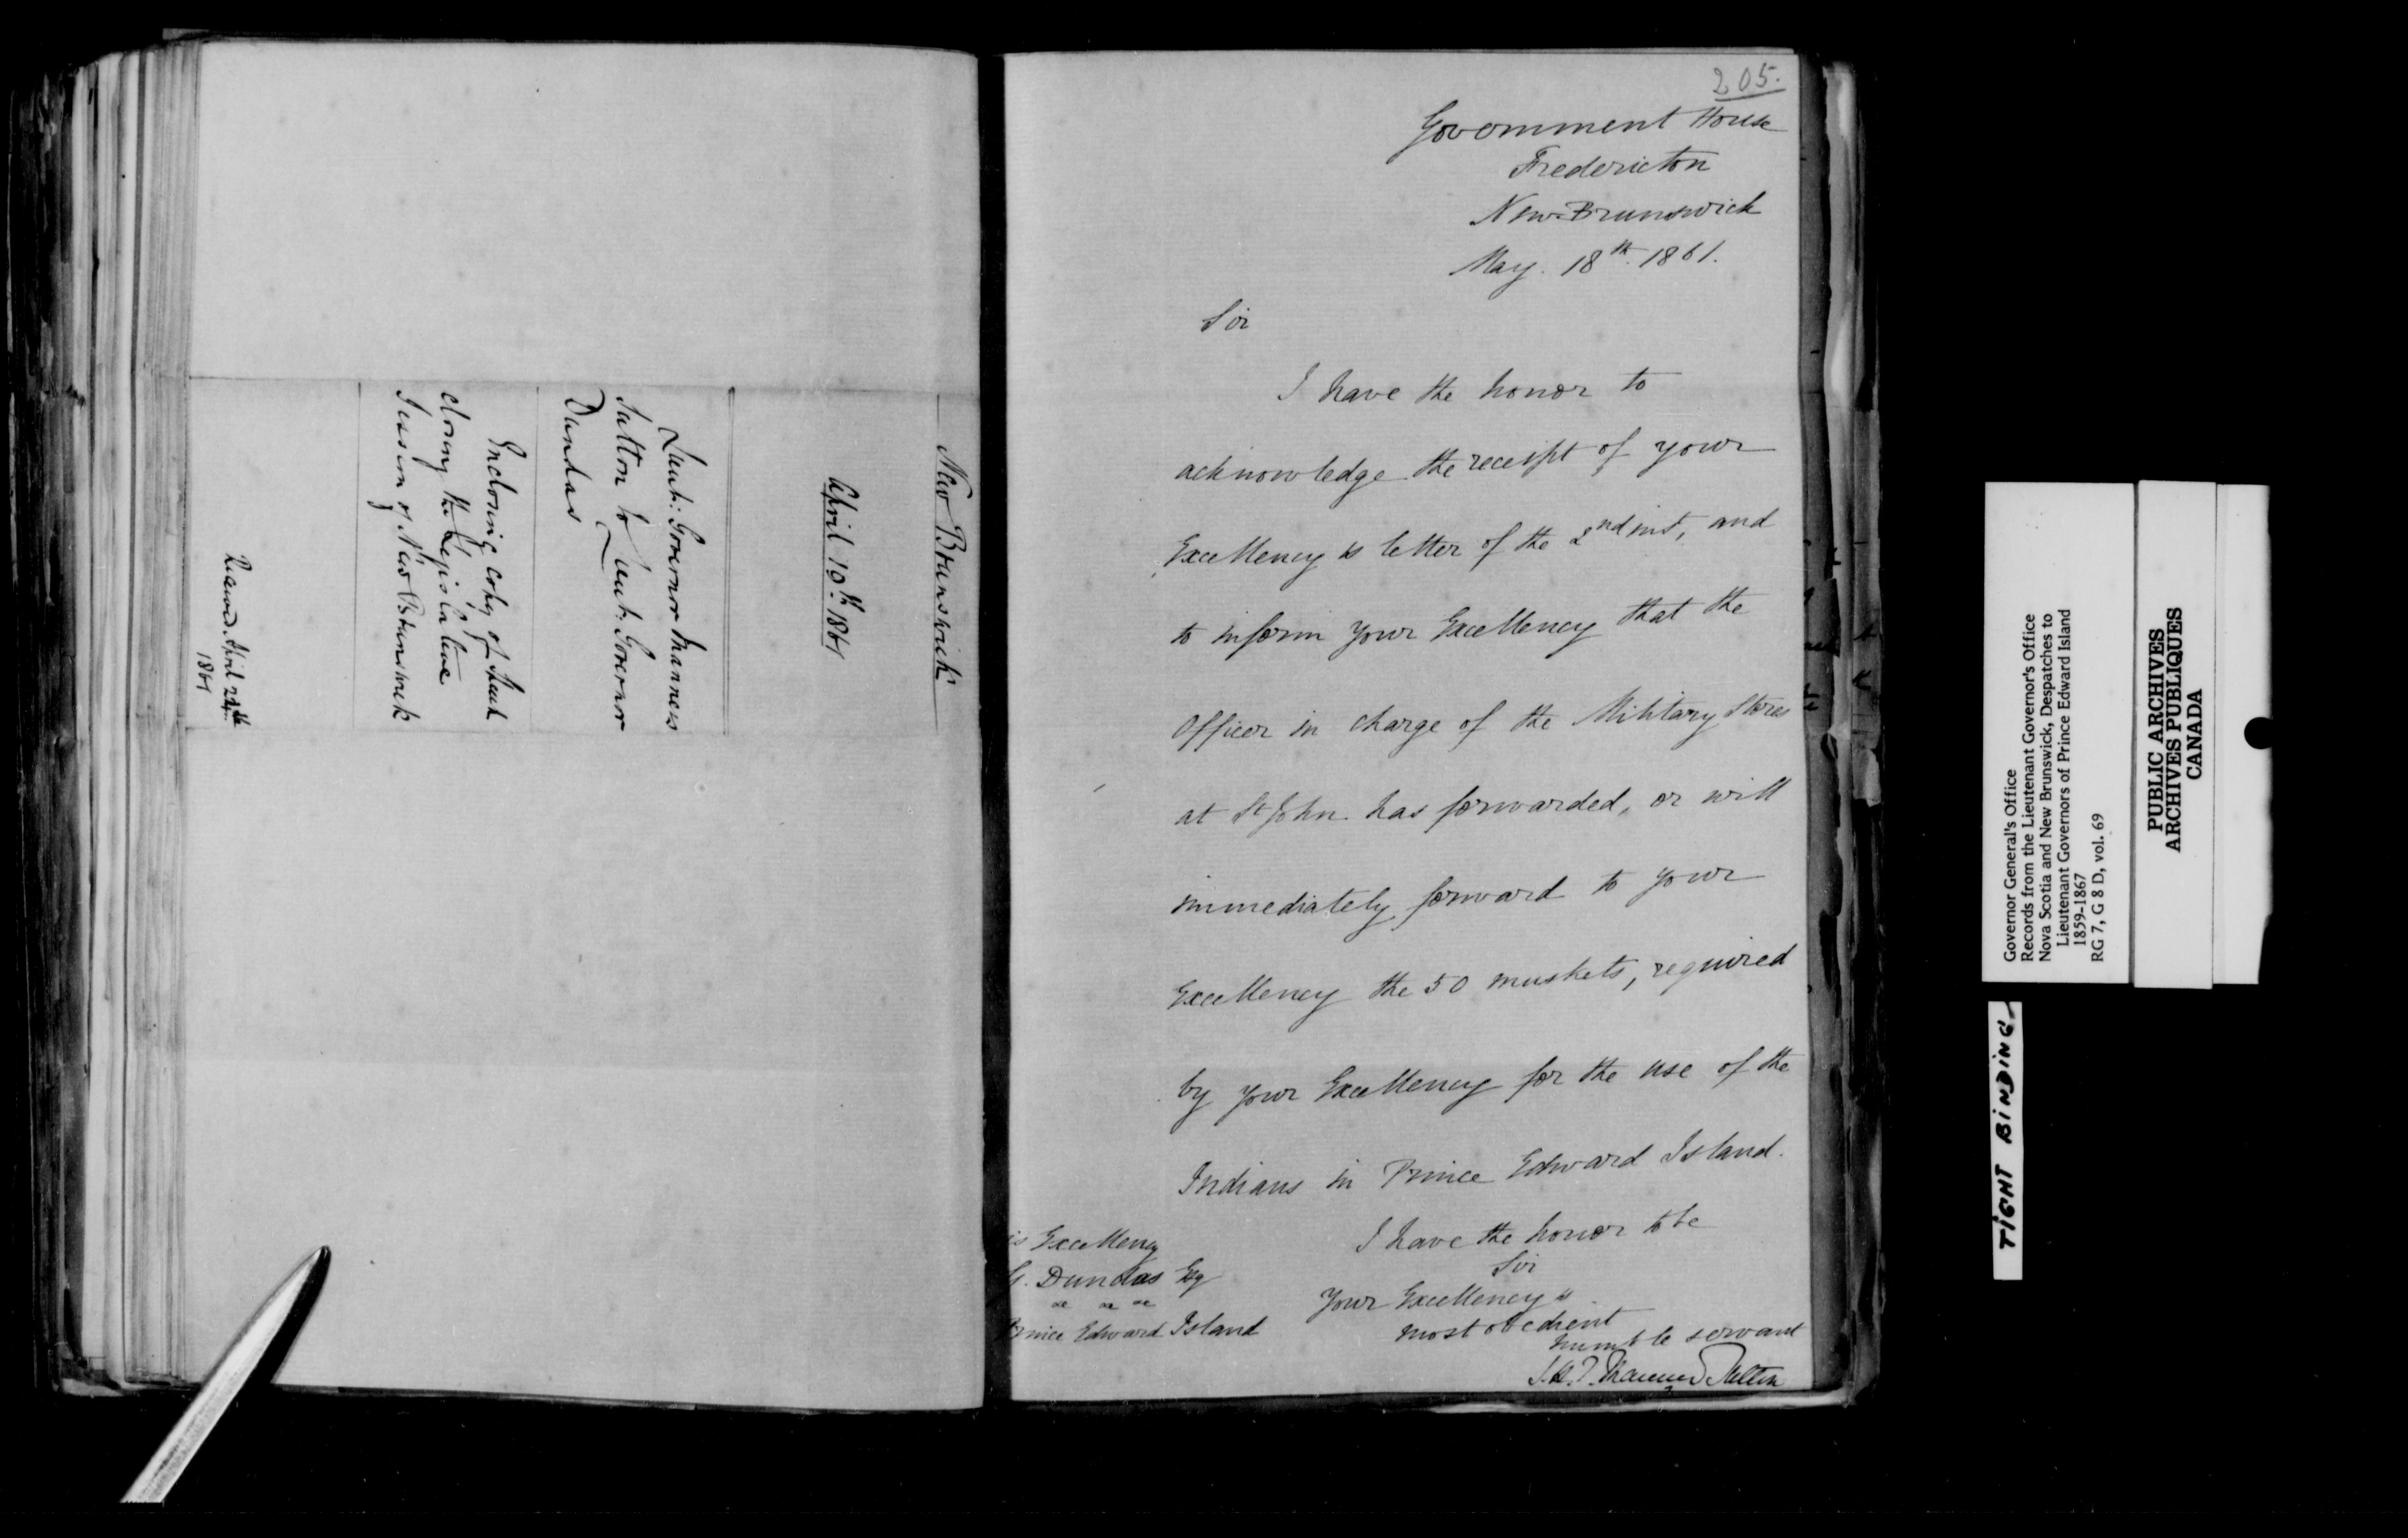 New Brunswick
April 10th 1861
Lieut: Governor Manners
Sutton to Lieut: Governor
Dundas
Enclosing copy of
closing the Legislative
Session of New Brunswick
Received April 24th
1861
205.
Government House
Fredericton
New Brunswick
May. 18th. 1861.
Sir
I have the honor to
acknowledge the receipt of your
Excellency's letter of the 2nd inst, and
to inform your Excellency that the
Officer in charge of the Military Stores
at St John has forwarded, or will
immediately forward to your
Excellency the 50 muskets, required
by your Excellency for the use of the
Indians in Prince Edward Island.
I have the honor to be
Sir
Your Excellency's
most obedient
humble servant
J. H. T. Manners Sutton
is Excellency
G. Dundas Esq
&c &c &c
Prince Edward Island
Governor General's Office
Records from the Lieutenant Governor's Office
Nova Scotia and New Brunswick, Despatches to
Lieutenant Governors of Prince Edward Island
1859-1867
RG 7, G 8 D, vol. 69
PUBLIC ARCHIVES
ARCHIVES PUBLIQUES
CANADA
TIGHT BINDING